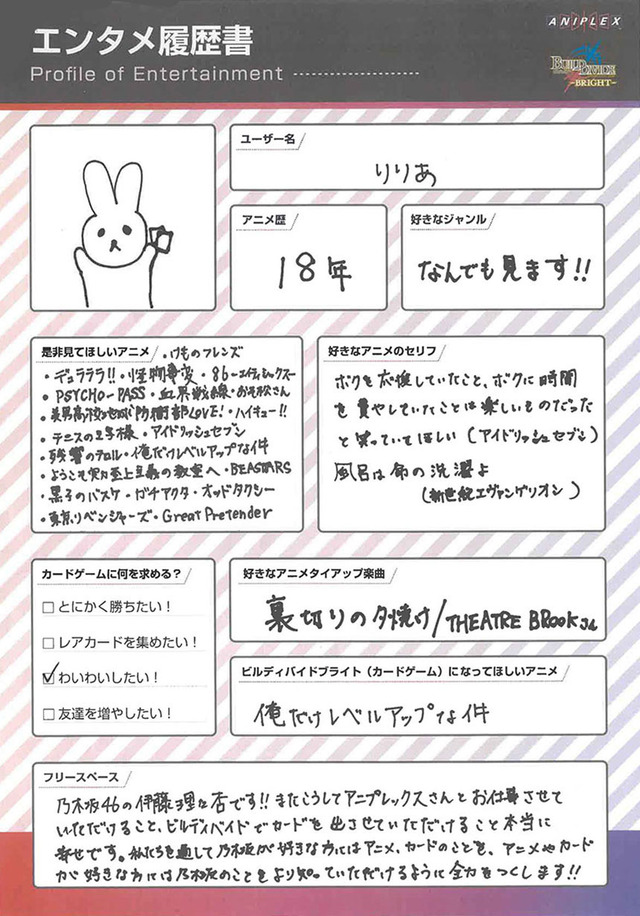 エンタメ履歴書
Profile of Entertainment
ANIPLEX
BUILD DIVIDE
-BRIGHT-
ユーザー名
りりあ
アニメ歴
18年
好きなジャンル
なんでも見ます!!
是非見てほしいアニメ
・けものフレンズ
・デュラララ!!・怪物事変・86-エイティシックス-
・PSYCHO-PASS・血界戦線・おそ松さん
・美男高校地球防衛部LOVE!・ハイキュー!!
・テニスの王子様・アイドリッシュセブン
・残響のテロル・俺だけレベルアップな件
・ようこそ実力至上主義の教室へ・BEASTARS
・黒子のバスケ・ガチアクタ・オッドタクシー
・東京リベンジャーズ・Great Pretender
好きなアニメのセリフ
ボクを応援していたこと、ボクに時間
を費やしていたことは楽しいものだった
と笑っていてほしい(アイドリッシュセブン)
風呂は命の洗濯よ
(新世紀エヴァンゲリオン)
カードゲームに何を求める?
とにかく勝ちたい!
レアカードを集めたい!
わいわいしたい!
友達を増やしたい!
好きなアニメタイアップ楽曲
裏切りの夕焼け/THEATRE BROOK
ビルディバイドブライト(カードゲーム)になってほしいアニメ
俺だけレベルアップな件
フリースペース
乃木坂46の伊藤理々杏です!!またこうしてアニプレックスさんとお仕事させて
いただけること、ビルディバイドでカードを出させていただけること本当に
幸せです。私たちを通して乃木坂が好きな方にはアニメ、カードのことを、アニメやカード
が好きな方には乃木坂のことをより知っていただけるように全力をつくします!!